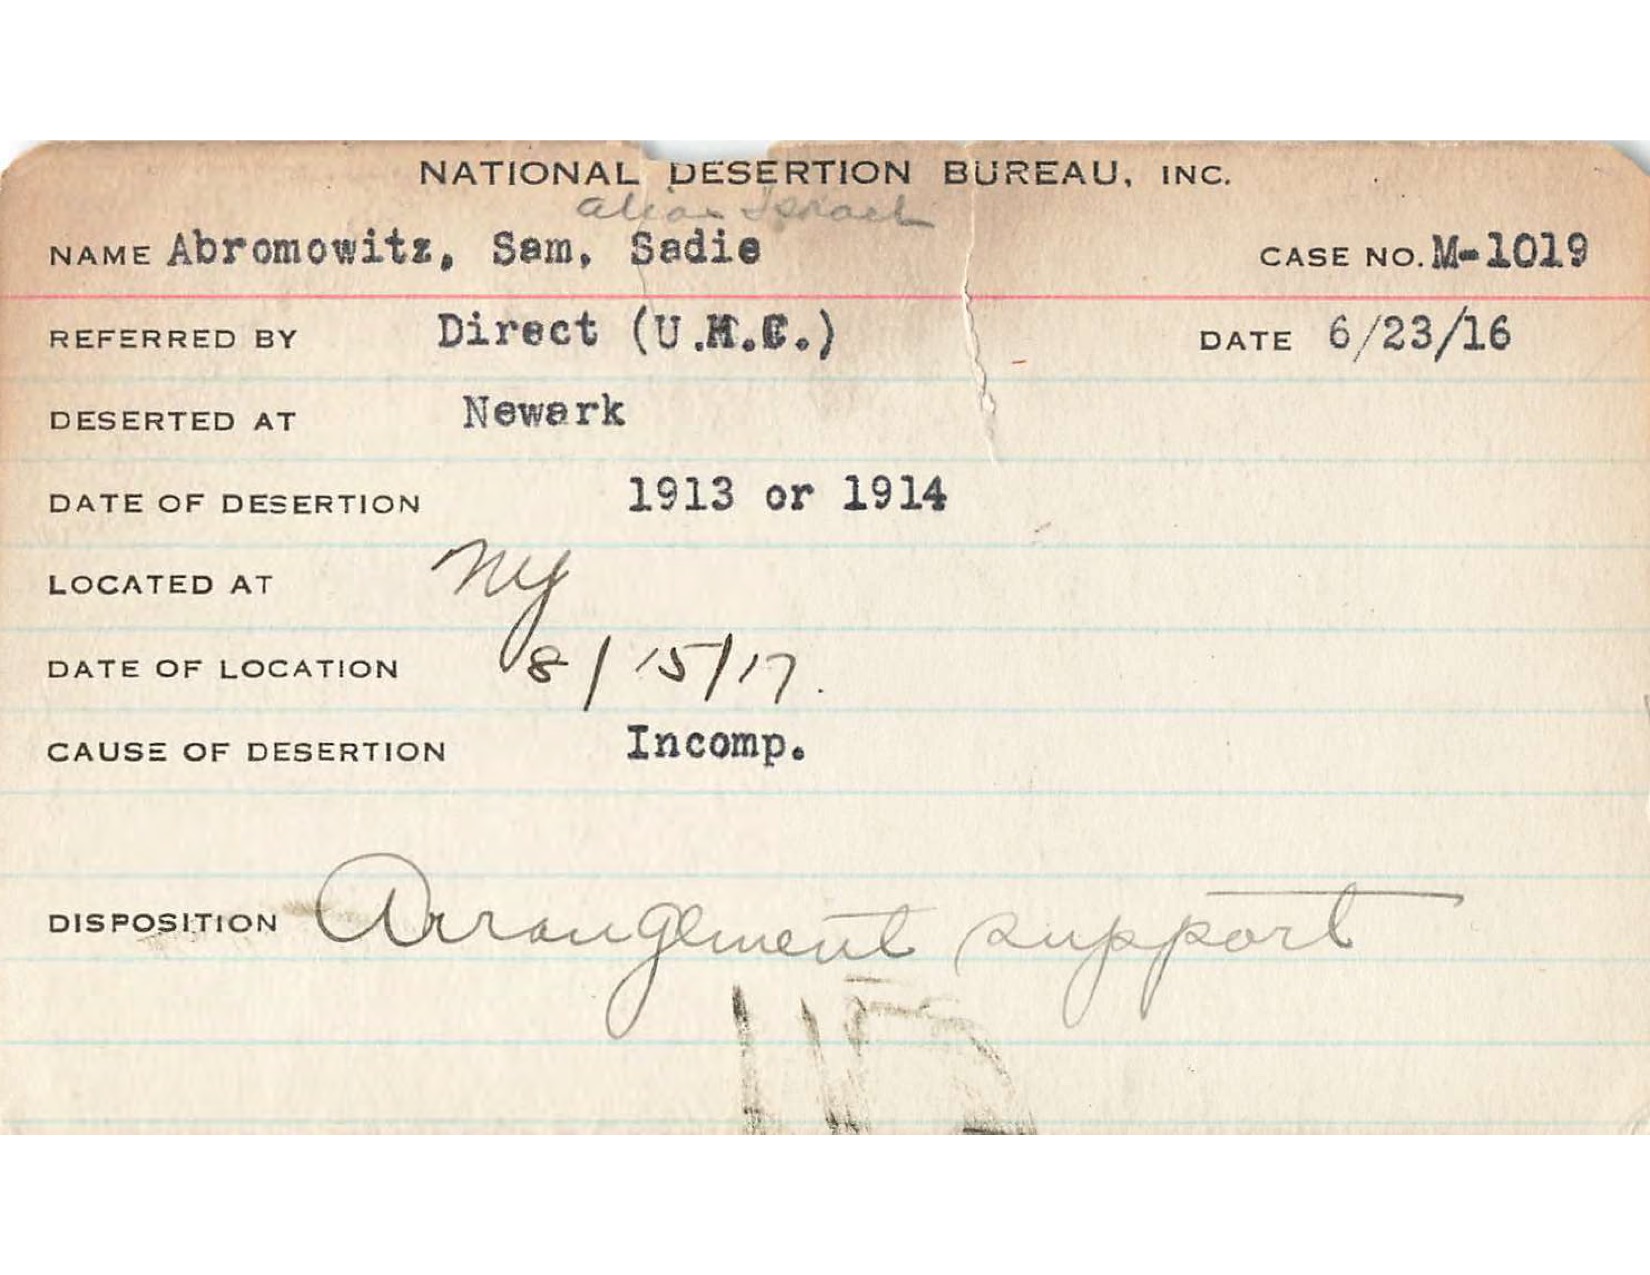 NATIONAL DESERTION BUREAU, INC.
alias Israel
NAME Abromowitz, Sam, Sadie CASE NO. M-1019
REFERRED BY Direct (U.H.C.) DATE 6/23/16
DESERTED AT Newark
DATE OF DESERTION 1913 or 1914
LOCATED AT NY
DATE OF LOCATION 8/15/17.
CAUSE OF DESERTION Incomp.
DISPOSITION Arrangement support